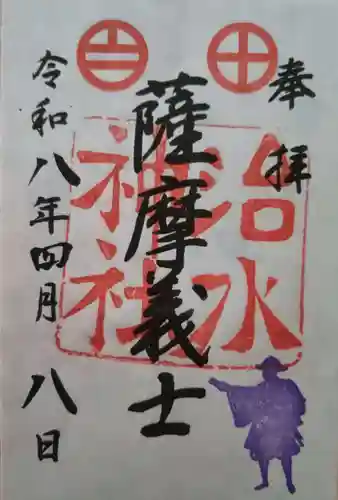 奉拝
薩摩義士
治水
神社
令和八年四月八日